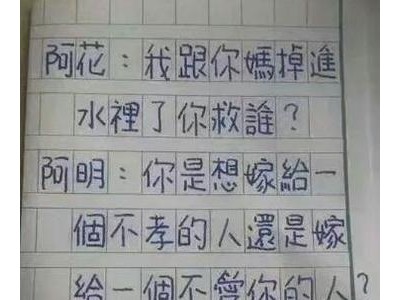 阿花：我跟你媽掉進
水裡了你救誰？
阿明：你是想嫁給一
個不孝的人還是嫁
給一個不愛你的人？